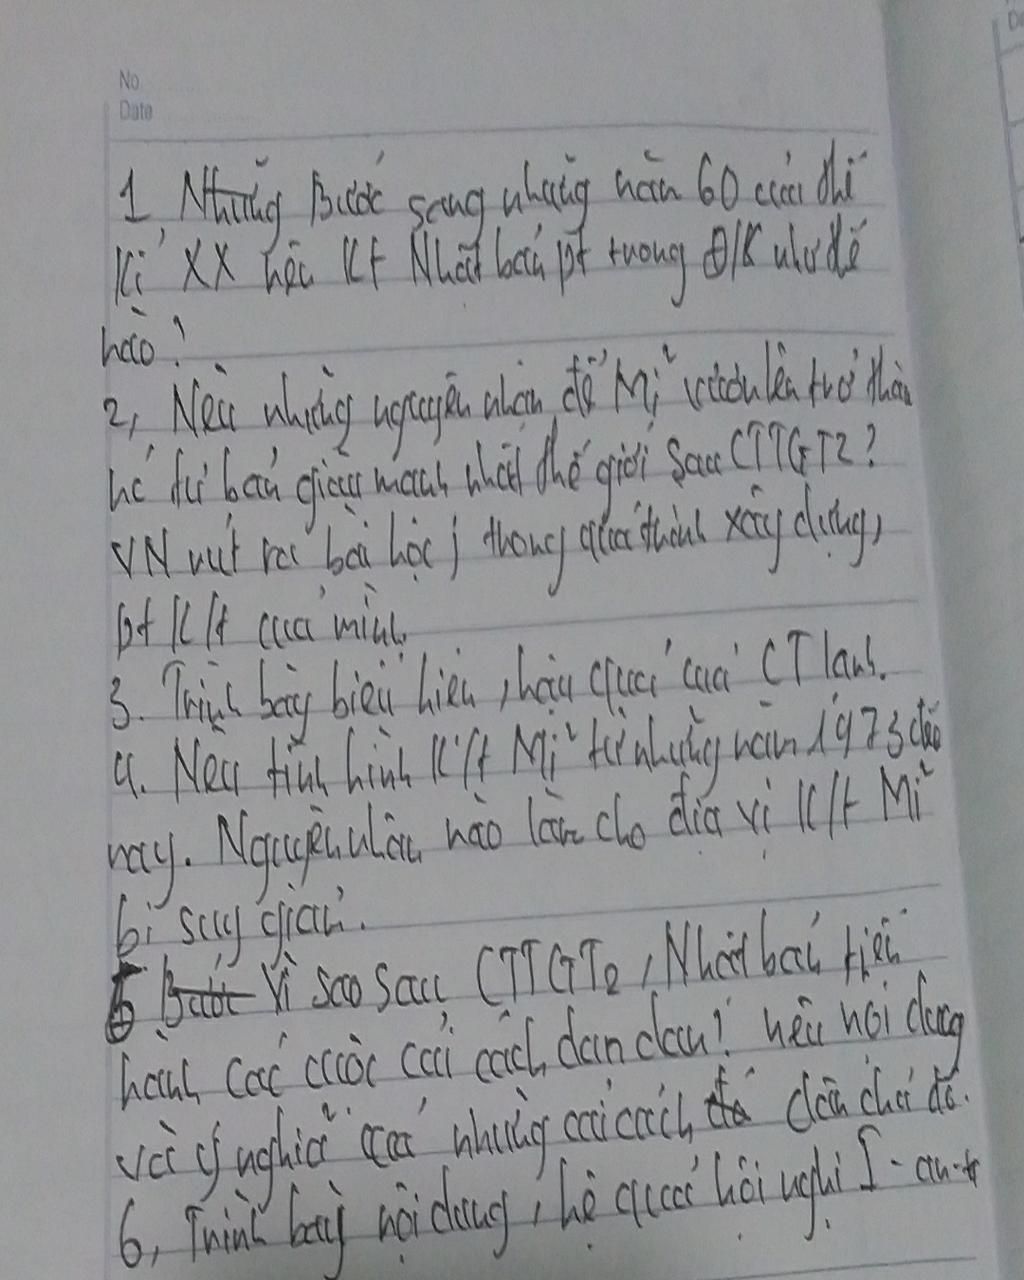 No
Date
1, Những Bước sang những năm 60 của thế
kỉ XX nền KT Nhật bản pt trong Đ/K như thế
nào?
2, Nêu những nguyên nhân để Mĩ vươn lên trở thàn
nc tư bản giàu mạnh nhất thế giới sau CTTGT2?
VN rút ra bài học j thong quá thình xây dựng,
pt K/t của mình.
3. Trình bày biểu hiện, hậu quả của CT lạnh.
4. Nêu tình hình K/t Mĩ từ những năm 1973 đến
nay. Nguyên nhân nào làm cho địa vị K/t Mĩ
bị suy giản.
5 Bước Vì sao sau CTTGT2, Nhật bản tiến
hành các cuộc cải cách dân chủ! nêu nội dung
và ý nghĩa của những cải cách dân chủ đó.
6, Trình bày nội dung, hệ quả hội nghị I-an-t